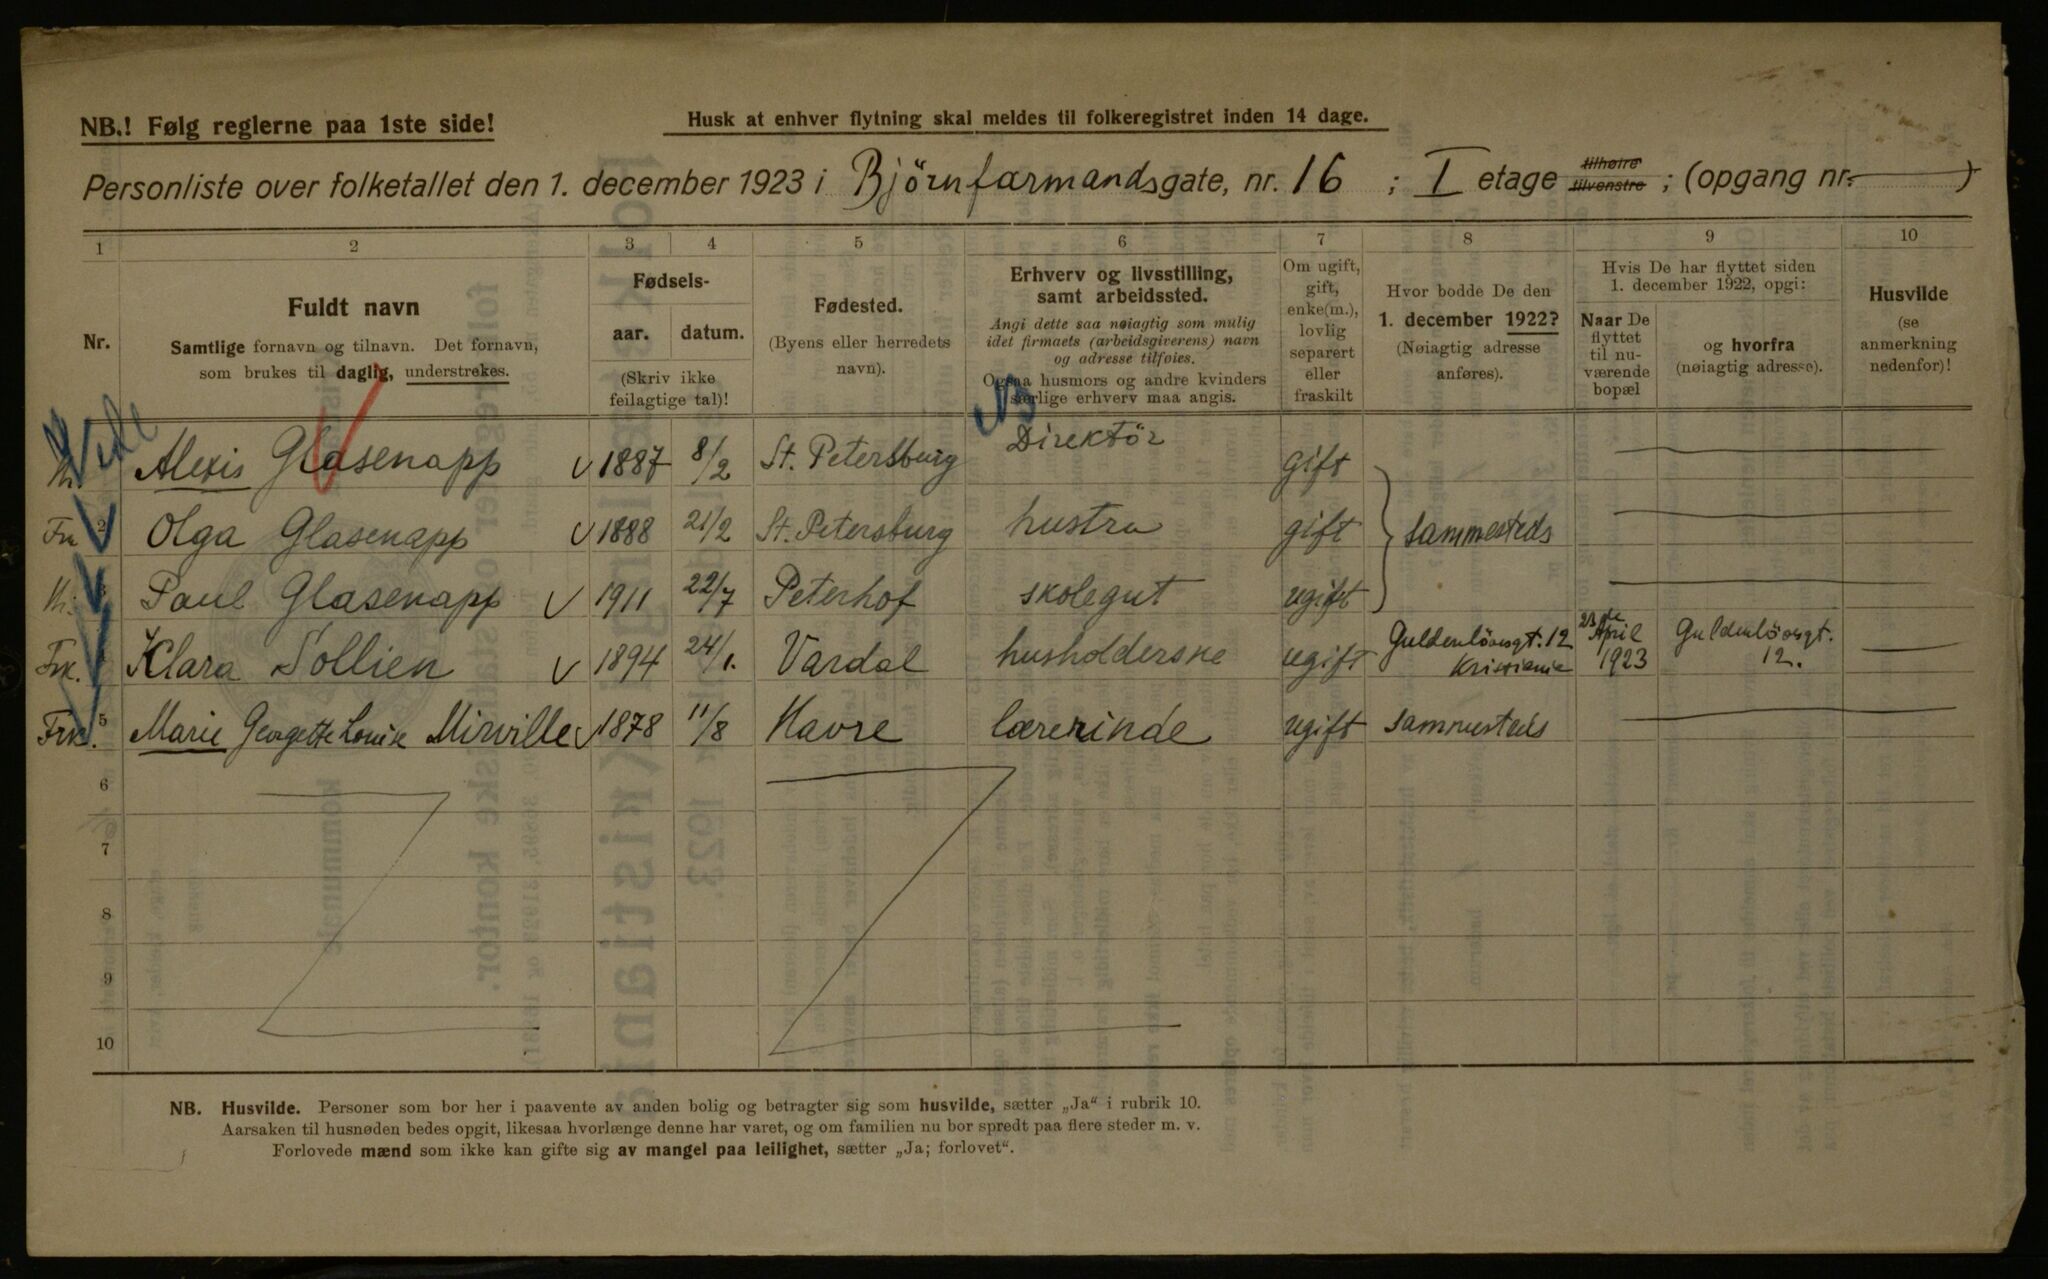 NB.! Følg reglerne paa 1ste side!
Husk at enhver flytning skal meldes til folkeregistret inden 14 dage.
Personliste over folketallet den 1. december 1923 i Björnfarmandsgate, nr. 16 ; I etage tilhøire tilvenstre ; (opgang nr. )
1 2 3 4 5 6 7 8 9 10
Nr.
Fuldt navn
Samtlige fornavn og tilnavn. Det fornavn,
som brukes til daglig, understrekes.
Fødsels-
aar. datum.
(Skriv ikke
feilagtige tal)!
Fødested.
(Byens eller herredets
navn).
Erhverv og livsstilling,
samt arbeidssted.
Angi dette saa nøiagtig som mulig
idet firmaets (arbeidsgiverens) navn
og adresse tilføies.
Ogsaa husmors og andre kvinders
særlige erhverv maa angis.
Om ugift,
gift,
enke(m.),
lovlig
separert
eller
fraskilt
Hvor bodde De den
1. december 1922?
(Nøiagtig adresse
anføres).
Hvis De har flyttet siden
1. december 1922, opgi:
Naar De
flyttet
til nu-
værende
bopæl
og hvorfra
(nøiagtig adresse).
Husvilde
(se
anmerkning
nedenfor)!
Alexis Glasenapp 1887 8/2 St. Petersburg Direktör gift
Fru 2 Olga Glasenapp 1888 21/2 St. Petersburg hustru gift sammesteds
Paul Glasenapp 1911 22/7 Peterhof skolegut ugift
Frk. Klara Sollien 1894 24/1. Vardal husholderske ugift Guldenlövsgt. 12 Kristiania 23de April 1923 Guldenlövsgt. 12.
Frk. 5 Marie Georgette Louise Mirville 1878 11/8 Havre lærerinde ugift sammesteds
6
7
8
9
10
NB. Husvilde. Personer som bor her i paavente av anden bolig og betragter sig som husvilde, sætter „Ja“ i rubrik 10.
Aarsaken til husnøden bedes opgit, likesaa hvorlænge denne har varet, og om familien nu bor spredt paa flere steder m. v.
Forlovede mænd som ikke kan gifte sig av mangel paa leilighet, sætter „Ja; forlovet“.